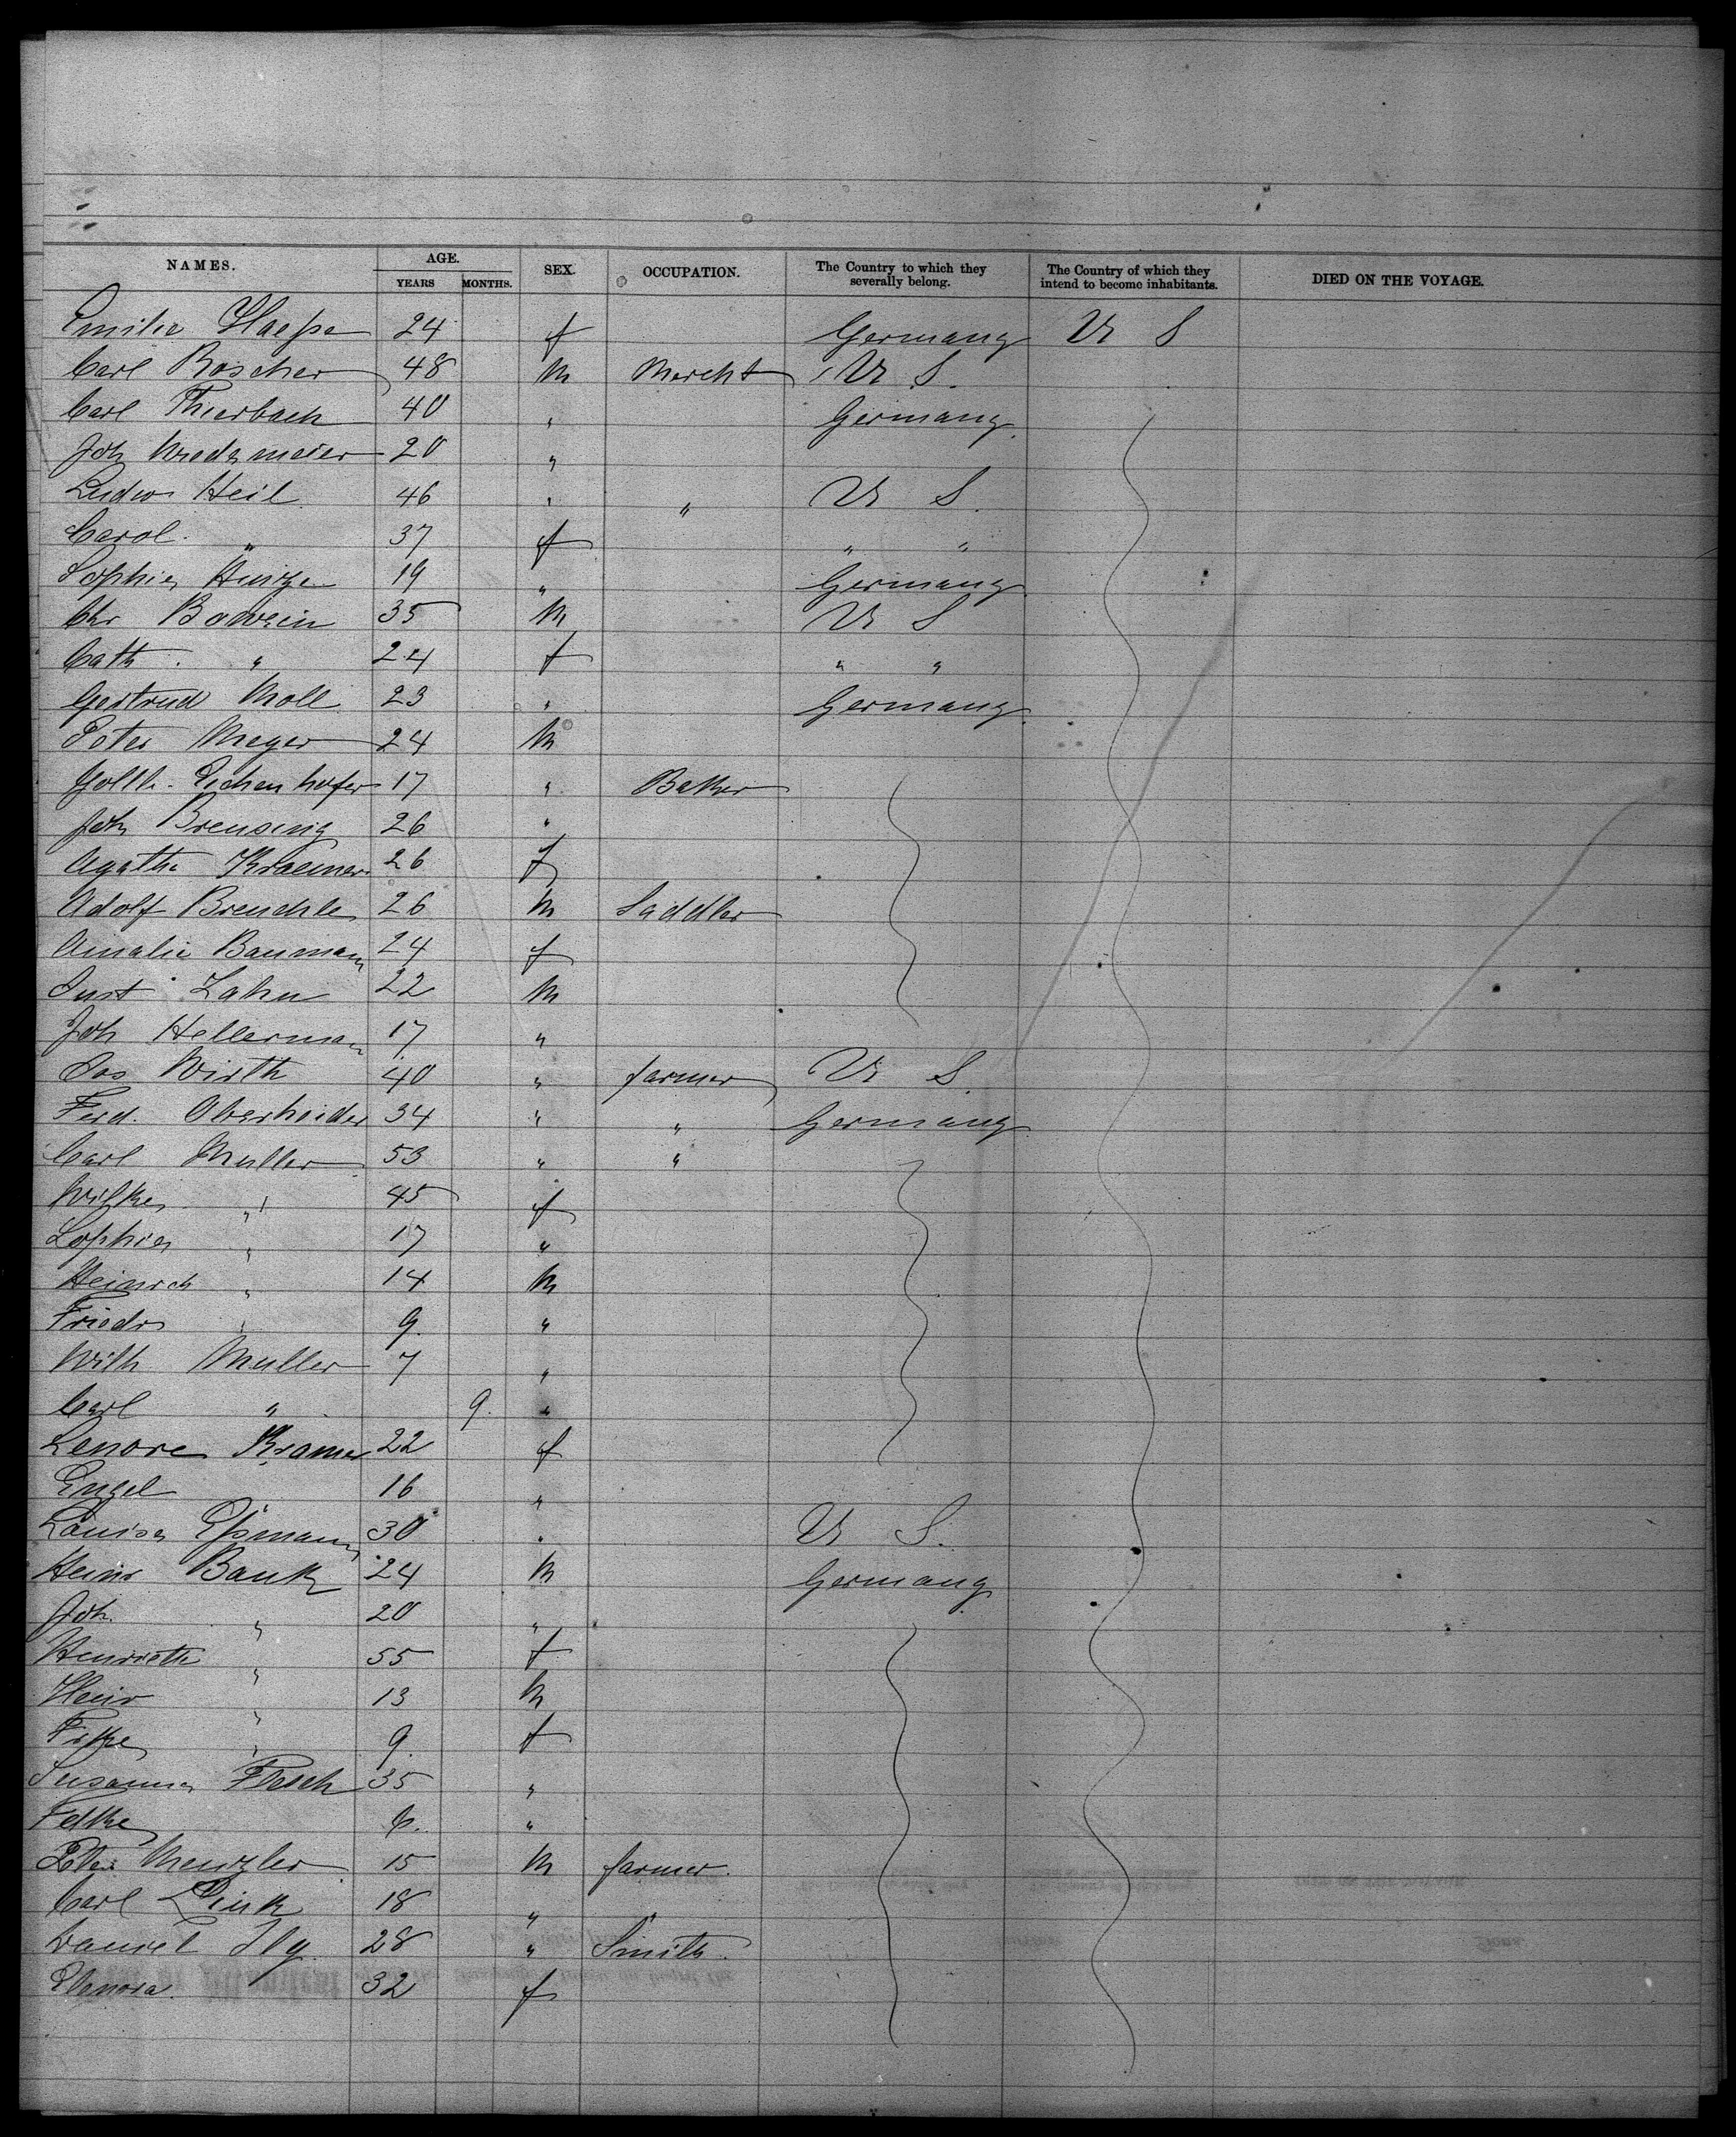 NAMES. AGE. SEX. OCCUPATION. The Country to which they severally belong. The Country of which they intend to become inhabitants. DIED ON THE VOYAGE.
YEARS MONTHS.
Emilie 24 f Germany U S
Carl Roscher 48 m Mercht U S.
Carl Thierbach 40 " Germany
Joh 20 "
Ludw Heil 46 " " U S.
Carol. " 37 f " "
Sophie 19 " Germany
Chr 35 m U S
Cath. " 24 f " "
Gertrud Moll 23 " Germany
Peter Meyer 24 m
Gottl. Eichenhofer 17 " Baker
Joh Breusing 26 "
Agatha Kraemer 26 f
Adolf Breuchle 26 m Saddler
Amalie Bauman 24 f
Just Zahn 22 m
Joh Hellerman 17 "
Jos Wirth 40 " farmer U S.
Ferd. Oberheider 34 " " Germany
Carl Muller 53 " "
" 45 f
Sophie " 17 "
Heinrch " 14 m
Friedr " 9. "
Wilh Muller 7 "
Carl " 9. "
Lenore Kramer 22 f
Engel 16 "
Louise Eßmann 30 " U S.
Heinr Bank 24 m Germany
Joh. " 20 "
Henriette " 55 f
Heinr " 13 m
" 9. f
Susanna Flesch 35 "
6. "
Peter Menzler 15 m farmer.
Carl Link 18 " "
Daniel Ilg 28 " Smith.
Elenora. 32 f